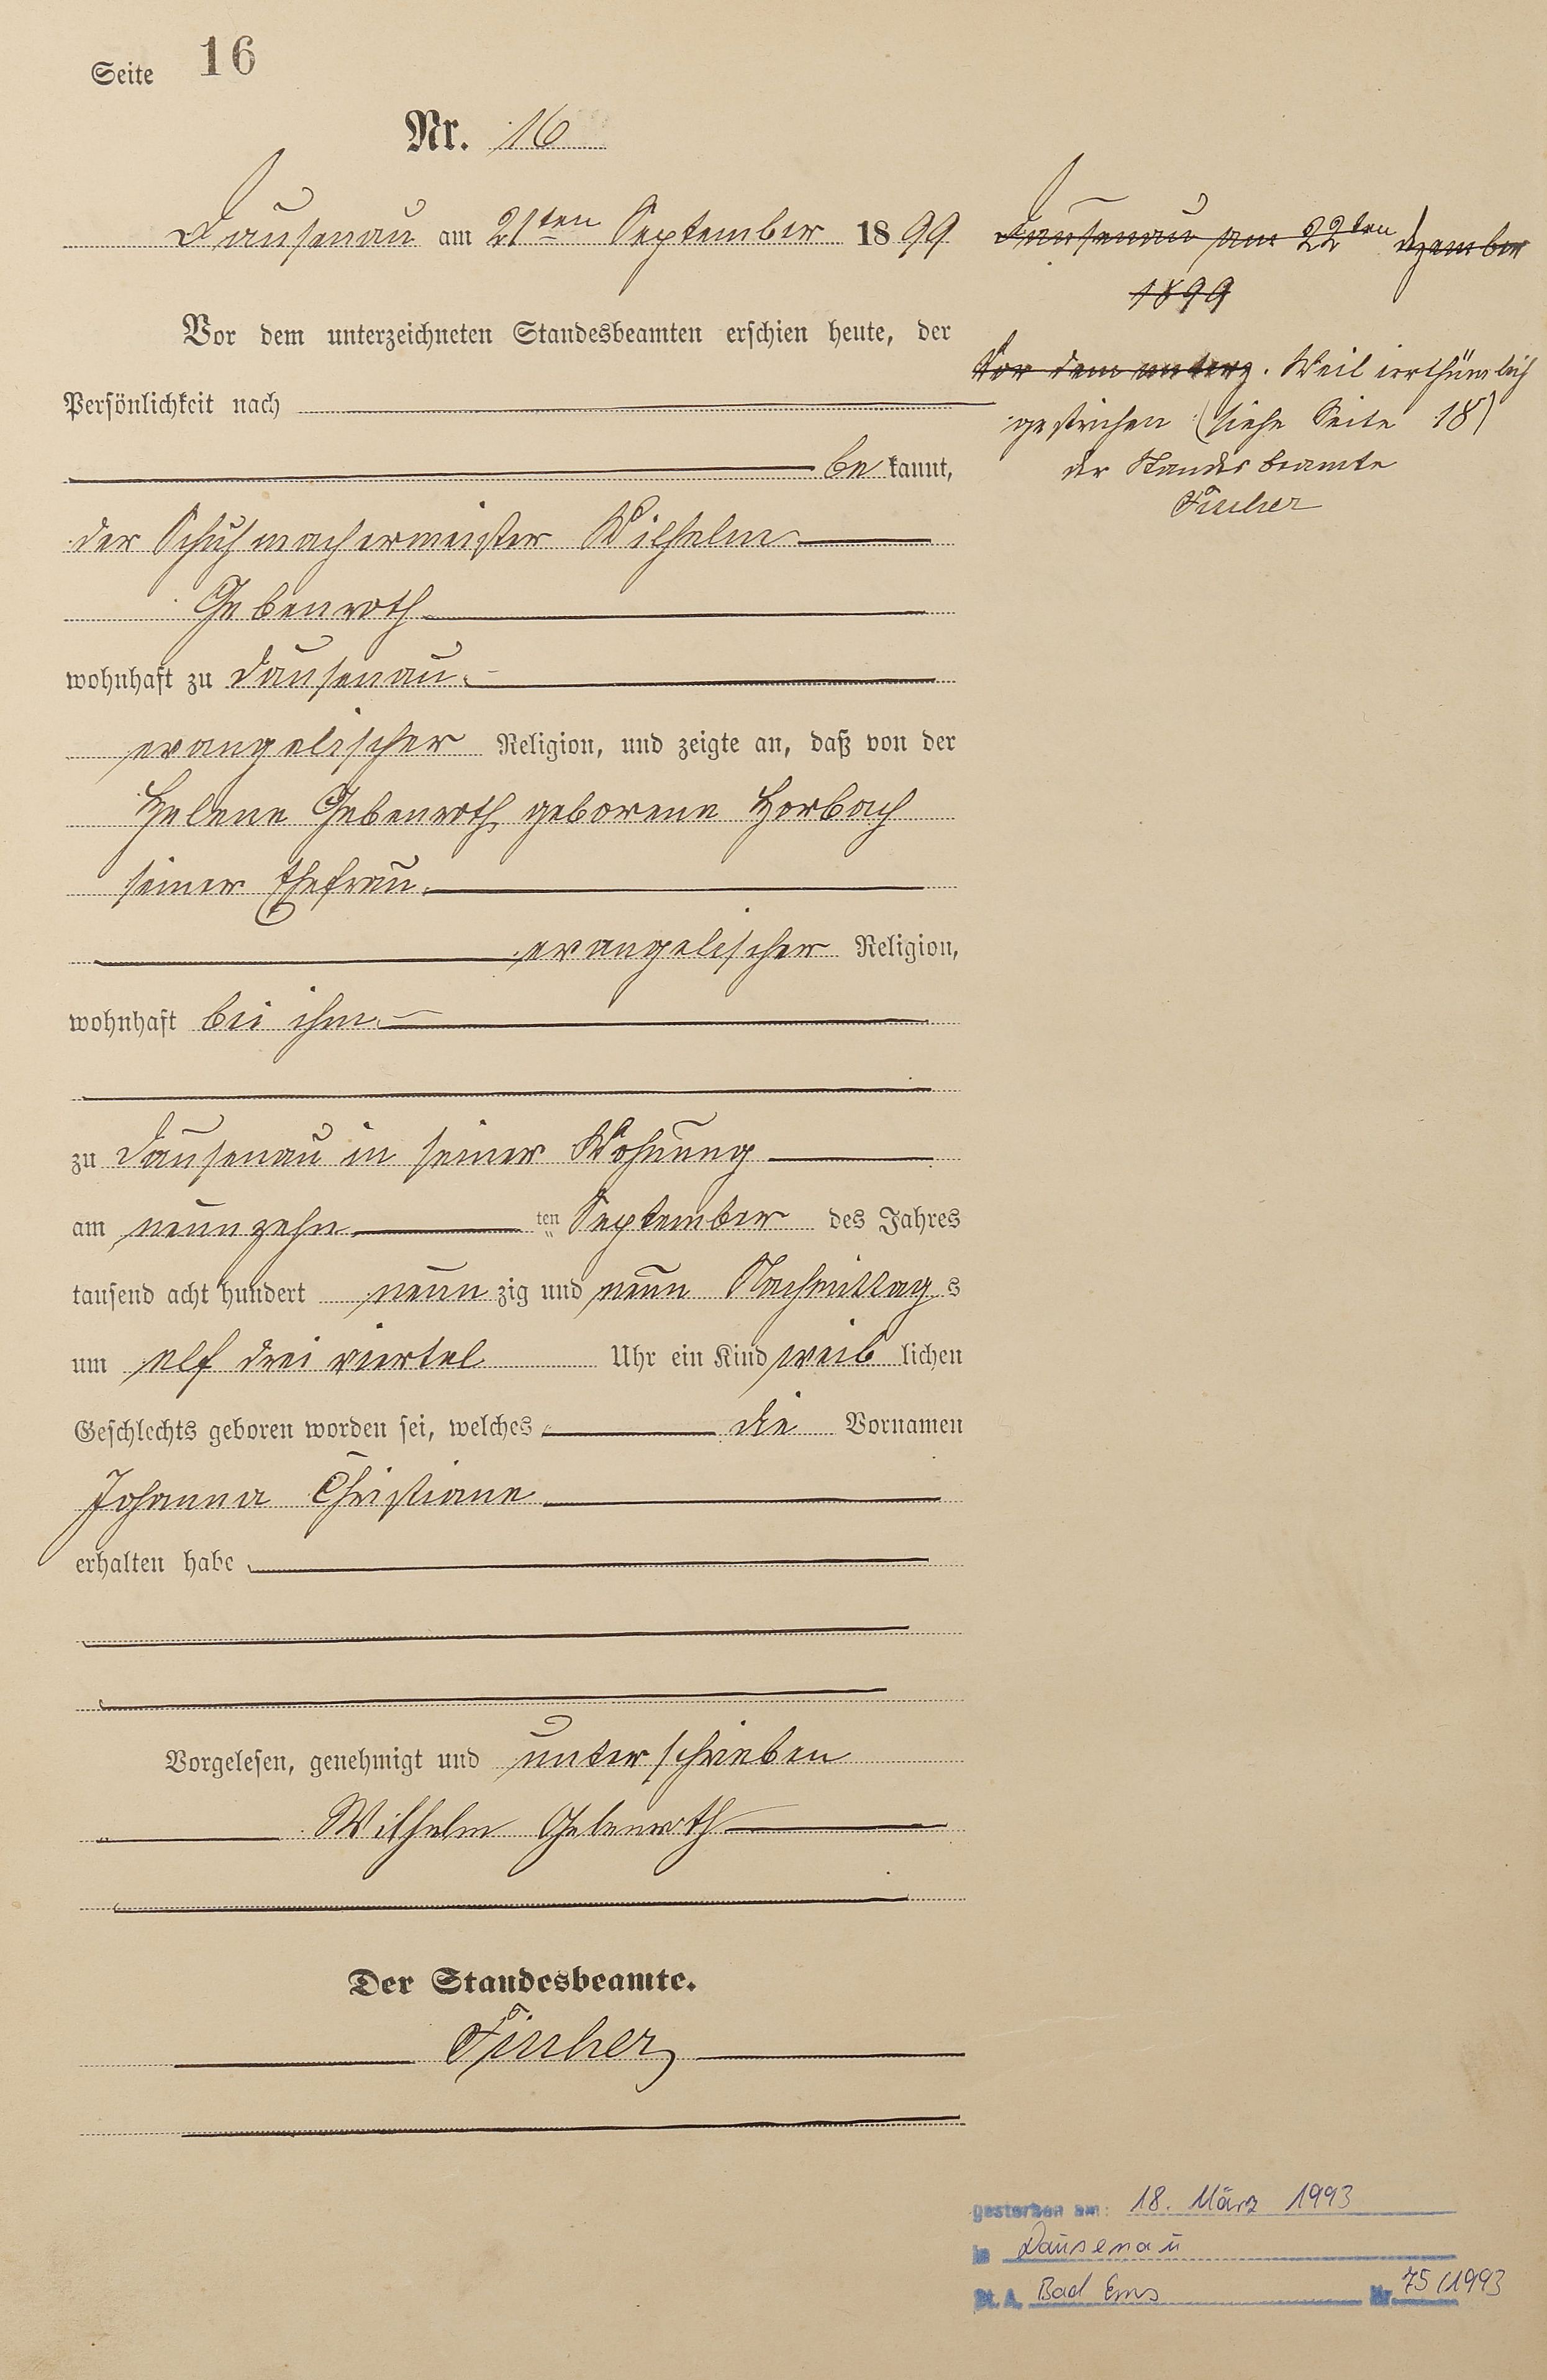 Seite 16
Nr. 16
Dausenau am 21ten September 1899
Vor dem unterzeichneten Standesbeamten erschien heute, der
Persönlichkeit nach
bekannt,
der Schuhmachermeister Wilhelm
Gebenroth
wohnhaft zu Dausenau
evangelischer Religion, und zeigte an, daß von der
Helene Gebenroth, geborene Horbach
seiner Ehefrau
evangelischer Religion,
wohnhaft bei ihm
zu Dausenau in seiner Wohnung
am neunzehn ten September des Jahres
tausend acht hundert neunzig und neun Nachmittags
um elf drei viertel Uhr ein Kind weiblichen
Geschlechts geboren worden sei, welches die Vornamen
Johanna Christiane
erhalten habe
Vorgelesen, genehmigt und unterschrieben
Wilhelm Gebenroth
Der Standesbeamte.
Dausenau am 22ten Dezember
1899
Vor dem unterz. Weil irrthümlich
gestrichen (siehe Seite 18)
der Standesbeamte
gestorben am: 18. März 1993
in Dausenau
St. A. Bad Ems Nr. 75/1993